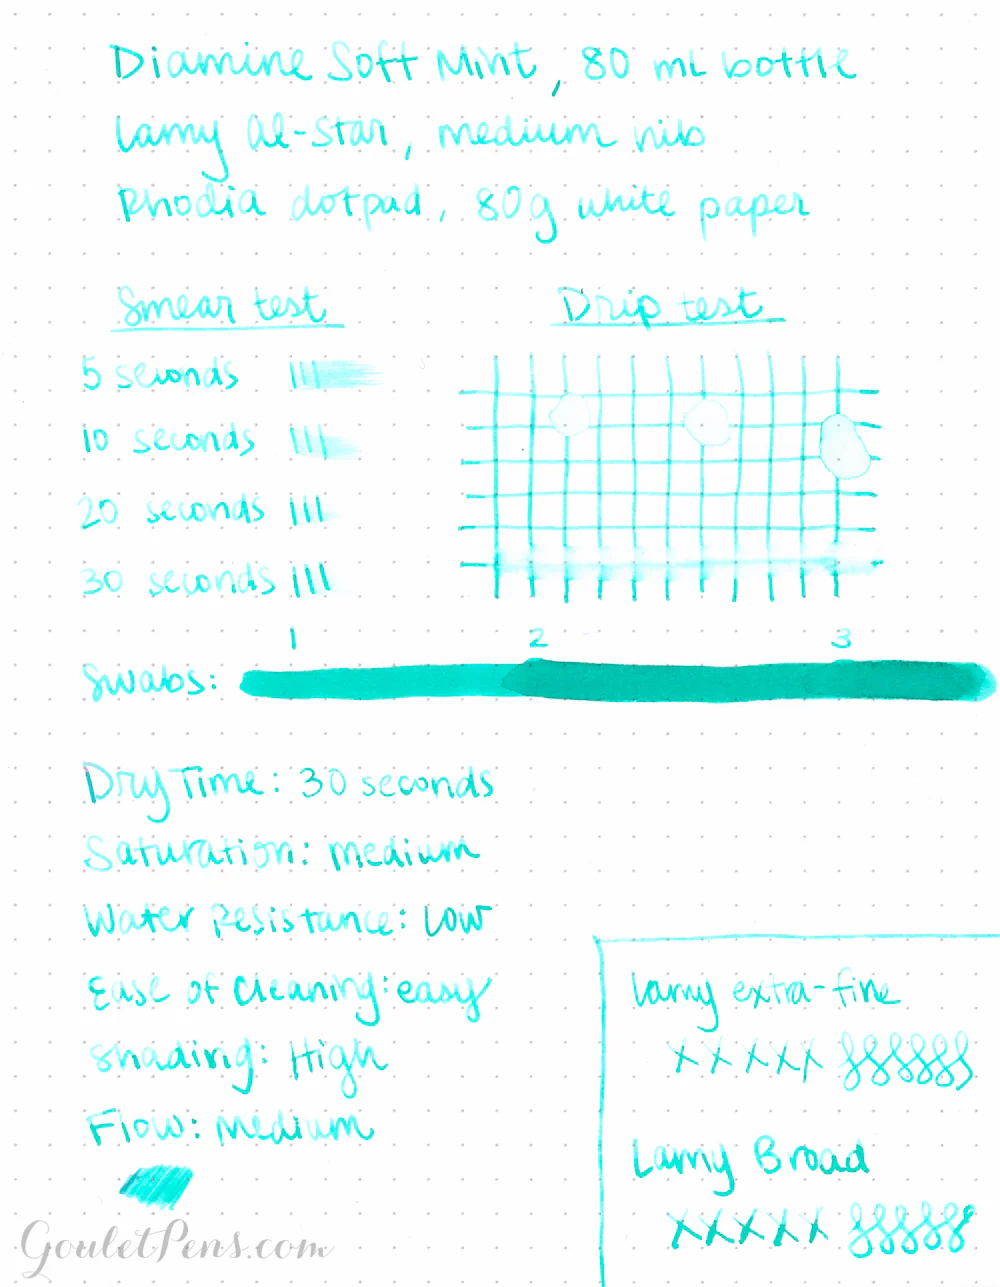 Diamine Soft Mint, 80 mL bottle
Lamy Al-Star, medium nib
Rhodia dotpad, 80g white paper
Smear test
5 seconds
10 seconds
20 seconds
30 seconds
Drip test
1 2 3
Swabs:
Dry Time: 30 seconds
Saturation: medium
Water Resistance: Low
Ease of Cleaning: easy
Shading: High
Flow: Medium
Lamy extra-fine
x x x x x
Lamy Broad
x x x x x
GouletPens.com